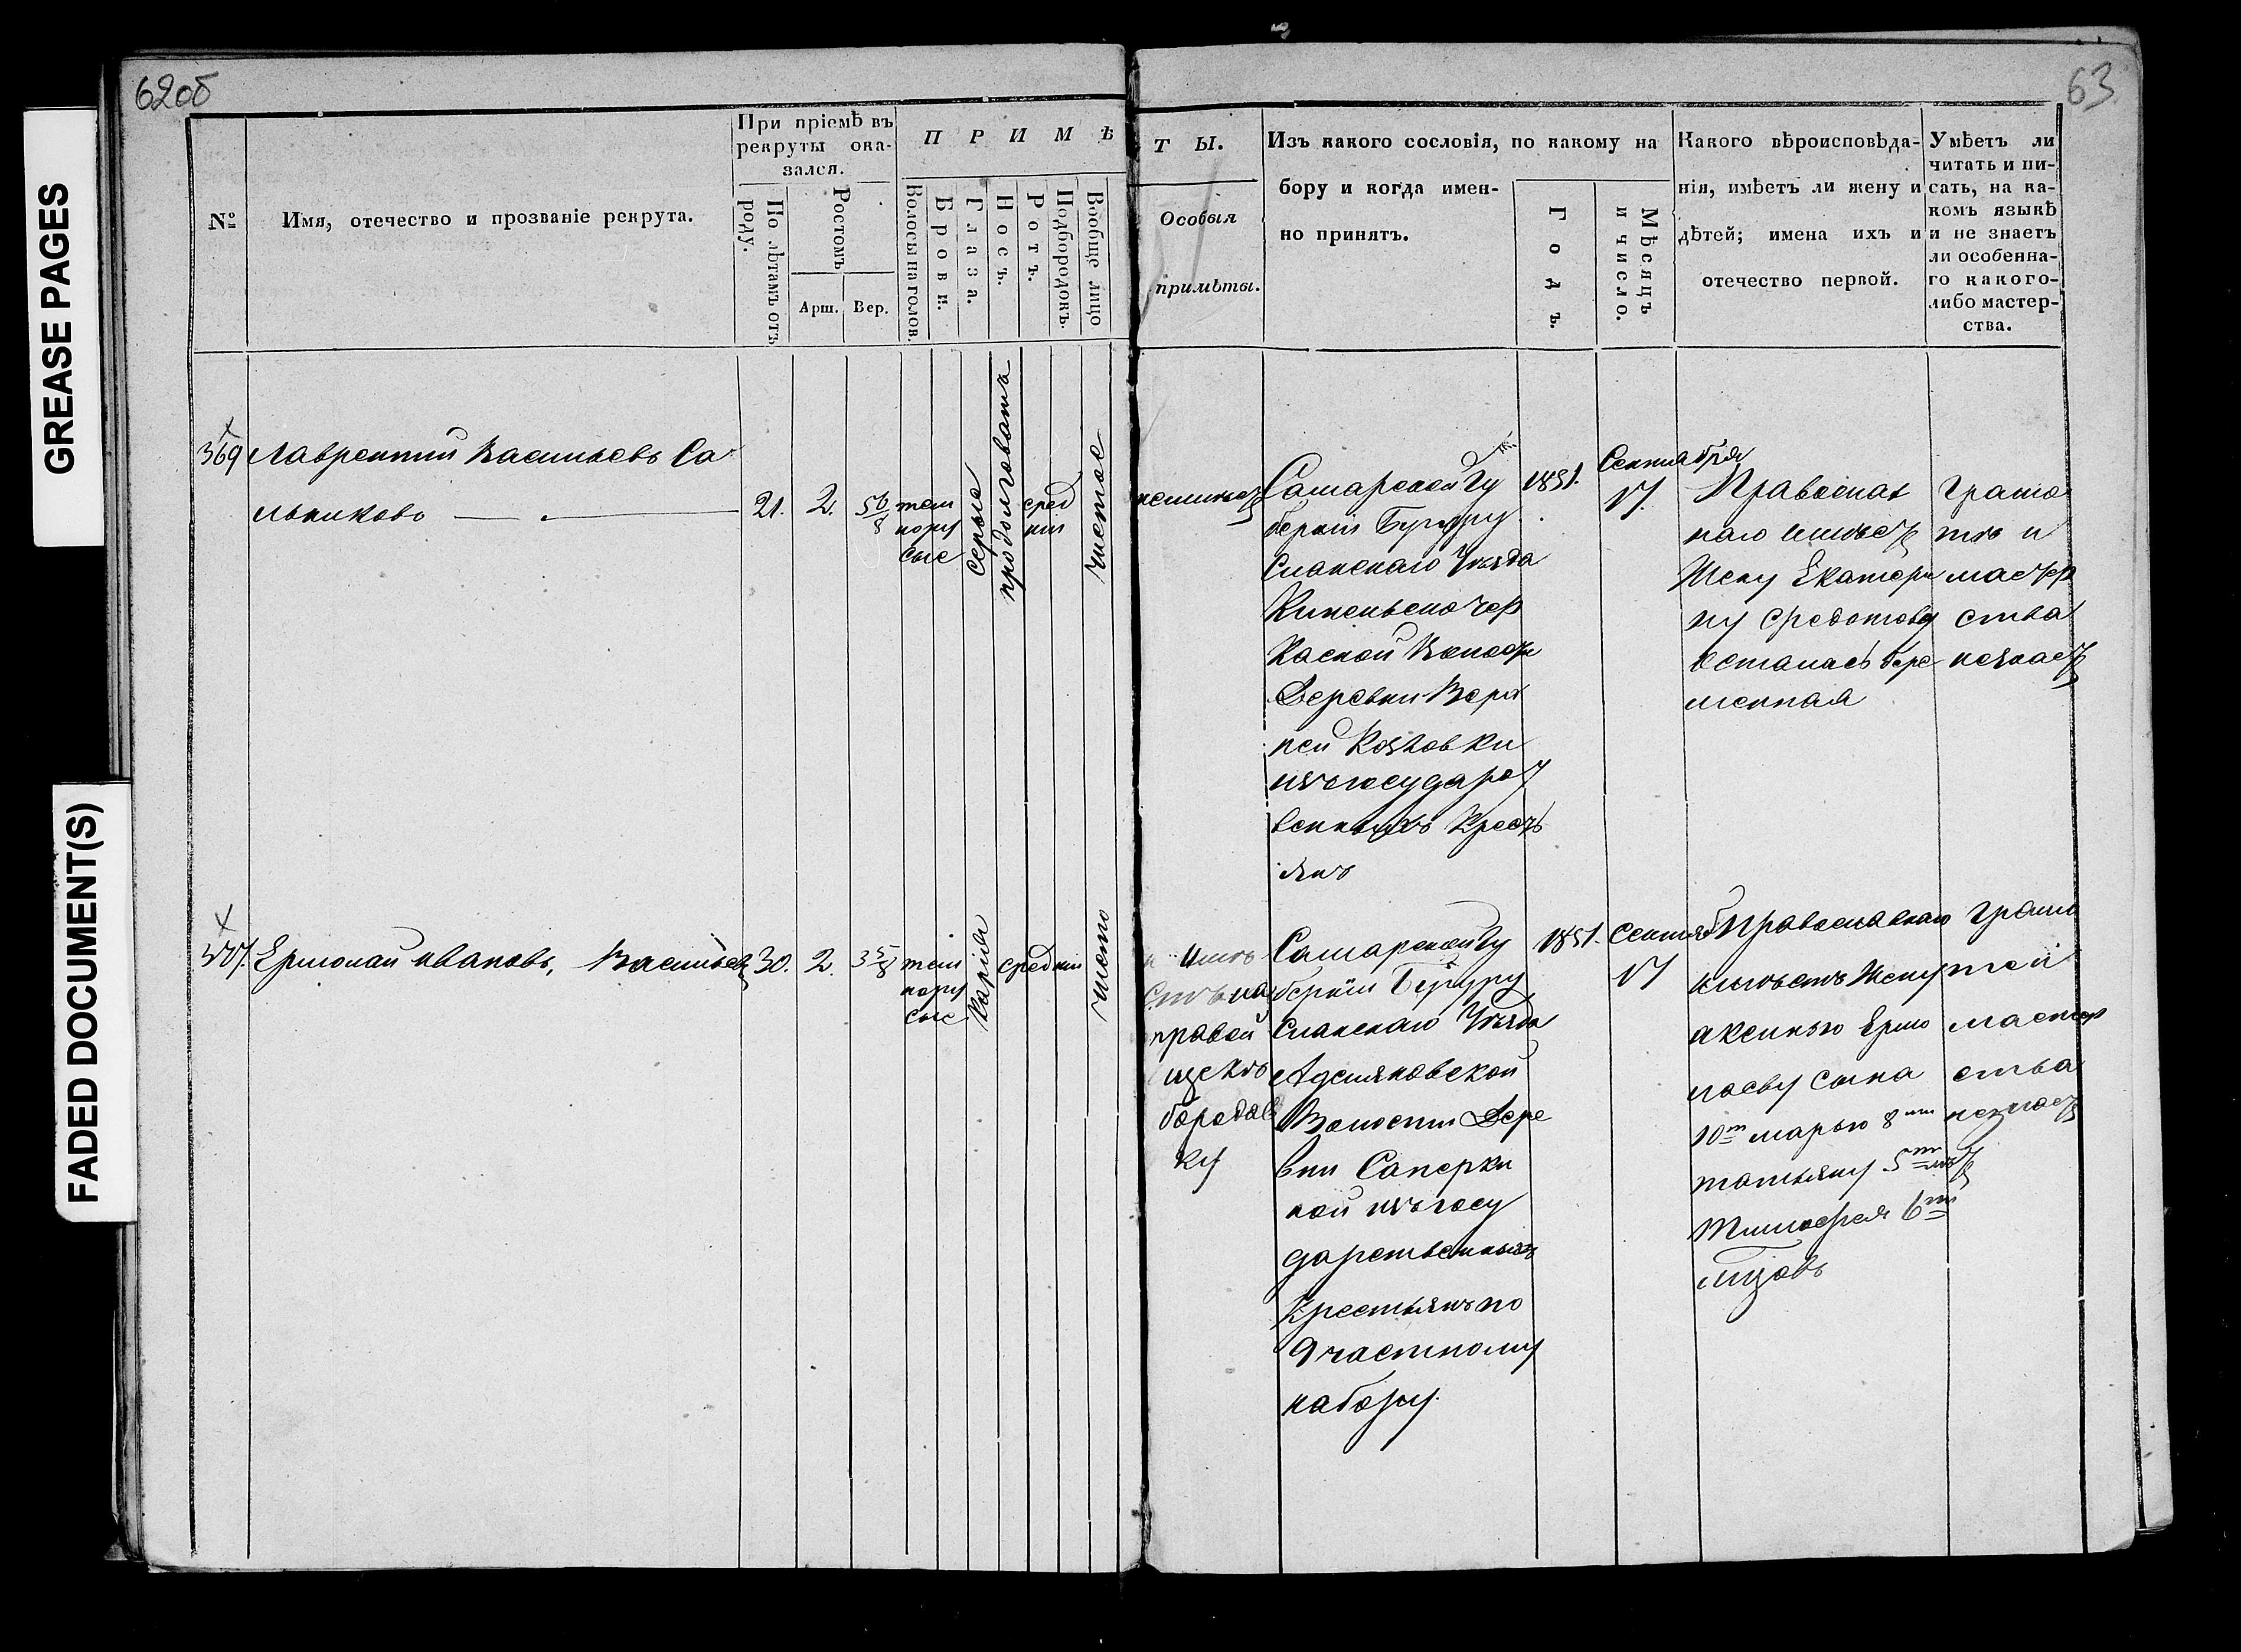 GREASE PAGES
FADED DOCUMENT(S)
62об
63
№
Имя, отечество и прозваніе рекрута.
При пріемѣ въ
рекруты ока-
зался.
По лѣтамъ отъ
роду.
Ростомъ
Арш.
Вер.
ПРИМѢ
Волосы на голов.
Брови.
Глаза.
Носъ.
Ротъ.
Подбородокъ.
Вообще лицо
ТЫ.
Особыя
примѣты.
Изъ какого сословія, по какому на
бору и когда имен-
но принятъ.
Годъ.
Мѣсяцъ
и число.
Какого вѣроисповѣда-
нія, имѣетъ ли жену и
дѣтей; имена ихъ и
отечество первой.
Умѣетъ ли
читать и пи-
сать, на ка-
комъ языкѣ
и не знаетъ
ли особенна-
го какого-
либо мастер-
ства.
369
Лаврентий Васильевъ Са
льниковъ
21.
2.
5 6/8
тем
нору
сые
серые
продолговатъ
сред
нии
чистое
неимѣетъ
Самарской Гу
берніи Бугуру
сланскаго Уѣзда
Кинельскочер
каской Волости
Деревни Верх
ней Козловки
изъ государст
венныхъ Крест
янъ
1851.
Сентября
17.
Православ
наго имѣетъ
Жену Екатери
ну Федотову
Осталась бере
менная
Грамо
тѣ и
мастер
ства
незнаетъ
370.
Ермолай Ивановъ, Васильевъ
30.
2.
3 5/8
тем
нору
сые
Карія
средніи
чисто
на
правой
щекѣ
бородав
ку
Самарской Гу
берніи Бугуру
сланскаго Уѣзда
Волости Дере
вни Саперки
ной изъ госу
дарственныхъ
Крестьянъ по
9 частному
набору.
1851.
Сентяб
17
Православнаго
имѣетъ Жену
Аксинью Ермо
лаеву сына
10 Марью 8
татьяну 5
Тимофея 6
Грамо
мастер
ства
незнаетъ